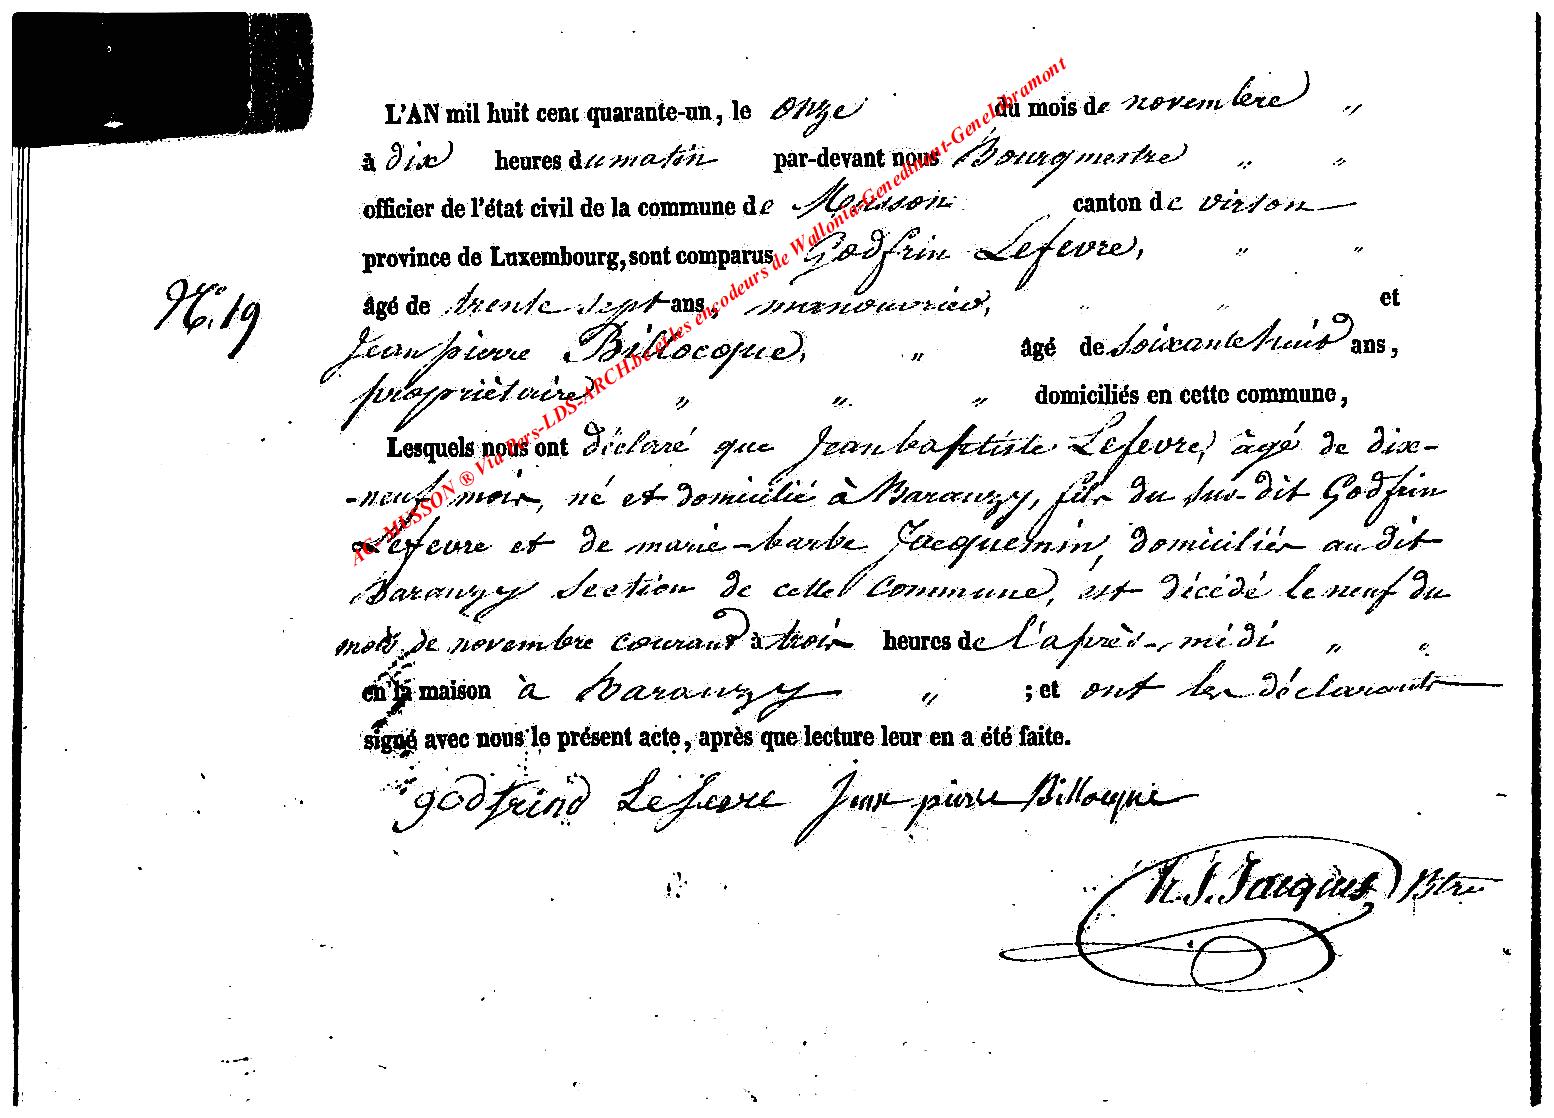 L'AN mil huit cent quarante-un, le onze du mois de novembre "
à dix heures du matin par-devant nous Bourgmestre " "
officier de l'état civil de la commune de Musson canton de virton
province de Luxembourg, sont comparus Godfrin Lefevre, " "
N.° 19
âgé de trente sept ans, manouvrier, " " et
Jean pierre Billocque, " âgé de soixante huit ans,
propriètaire " " " domiciliés en cette commune,
Lesquels nous ont déclaré que Jean baptiste Lefevre, âgé de dix-
-neuf mois, né et domicilié à Baranzy, fils du sus-dit Godfrin
Lefevre et de marie-barbe Jacquemin, domiciliés au dit
Baranzy section de cette Commune, est décédé le neuf du
mois de novembre courant à trois heures de l'après-midi " "
en la maison à Baranzy " ; et ont les déclarants
signé avec nous le présent acte, après que lecture leur en a été faite.
godfrind Lefevre Jean pierre Billocque
Jacques Btre
AC-MUSSON ® Via Pers-LDS-ARCH.be et les encodeurs de Wallonia-Genedinant-Genelibramont